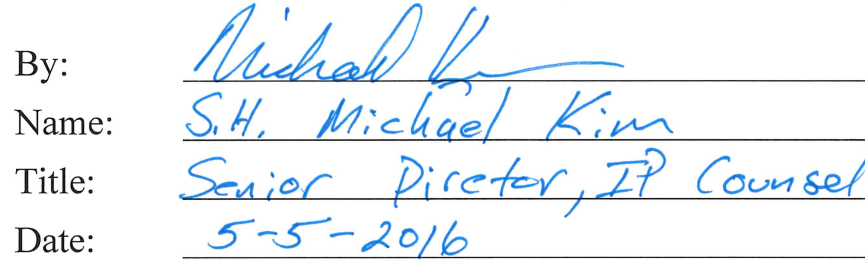 By: Michael K
Name: S.H. Michael Kim
Title: Senior Director, IP Counsel
Date: 5-5-2016